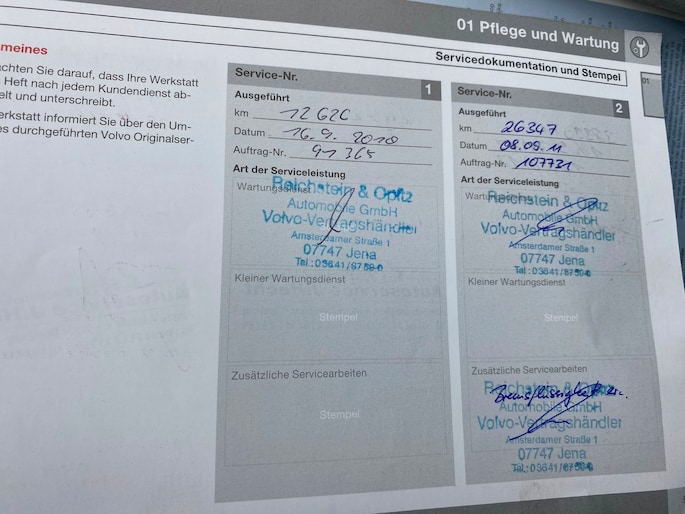 01 Pflege und Wartung
Servicedokumentation und Stempel
01
meines
chten Sie darauf, dass Ihre Werkstatt
Heft nach jedem Kundendienst ab-
elt und unterschreibt.
erkstatt informiert Sie über den Um-
es durchgeführten Volvo Originalser-
Service-Nr. 1
Ausgeführt
km 12626
Datum 16.9.2010
Auftrag-Nr. 91365
Art der Serviceleistung
Wartungsdienst
Reichstein & Opitz
Automobile GmbH
Volvo-Vertragshändler
Amsterdamer Straße 1
07747 Jena
Tel.: 03641/8750-0
Kleiner Wartungsdienst
Stempel
Zusätzliche Servicearbeiten
Stempel
Service-Nr. 2
Ausgeführt
km 26347
Datum 08.09.11
Auftrag-Nr. 107731
Art der Serviceleistung
Reichstein & Opitz
Automobile GmbH
Volvo-Vertragshändler
Amsterdamer Straße 1
07747 Jena
Tel.: 03641/8750-0
Kleiner Wartungsdienst
Stempel
Zusätzliche Servicearbeiten
Reichstein &
Bremsflüssigkeit
Automobile GmbH
Volvo-Vertragshändler
Amsterdamer Straße 1
07747 Jena
Tel.: 03641/8750-0